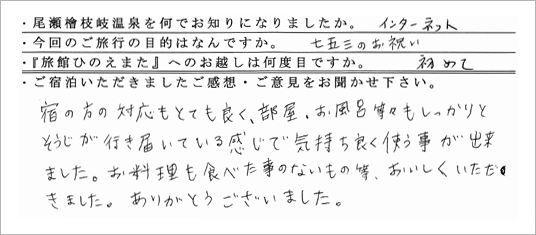 ・尾瀬檜枝岐温泉を何でお知りになりましたか。 インターネット
・今回のご旅行の目的はなんですか。 七五三のお祝い
・『旅館ひのえまた』へのお越しは何度目ですか。 初めて
・ご宿泊いただきましたご感想・ご意見をお聞かせ下さい。
宿の方の対応もとても良く、部屋、お風呂等々もしっかりと
そうじが行き届いている感じで気持ち良く使う事が出来
ました。お料理も食べた事のないもの等、おいしくいただ
きました。ありがとうございました。